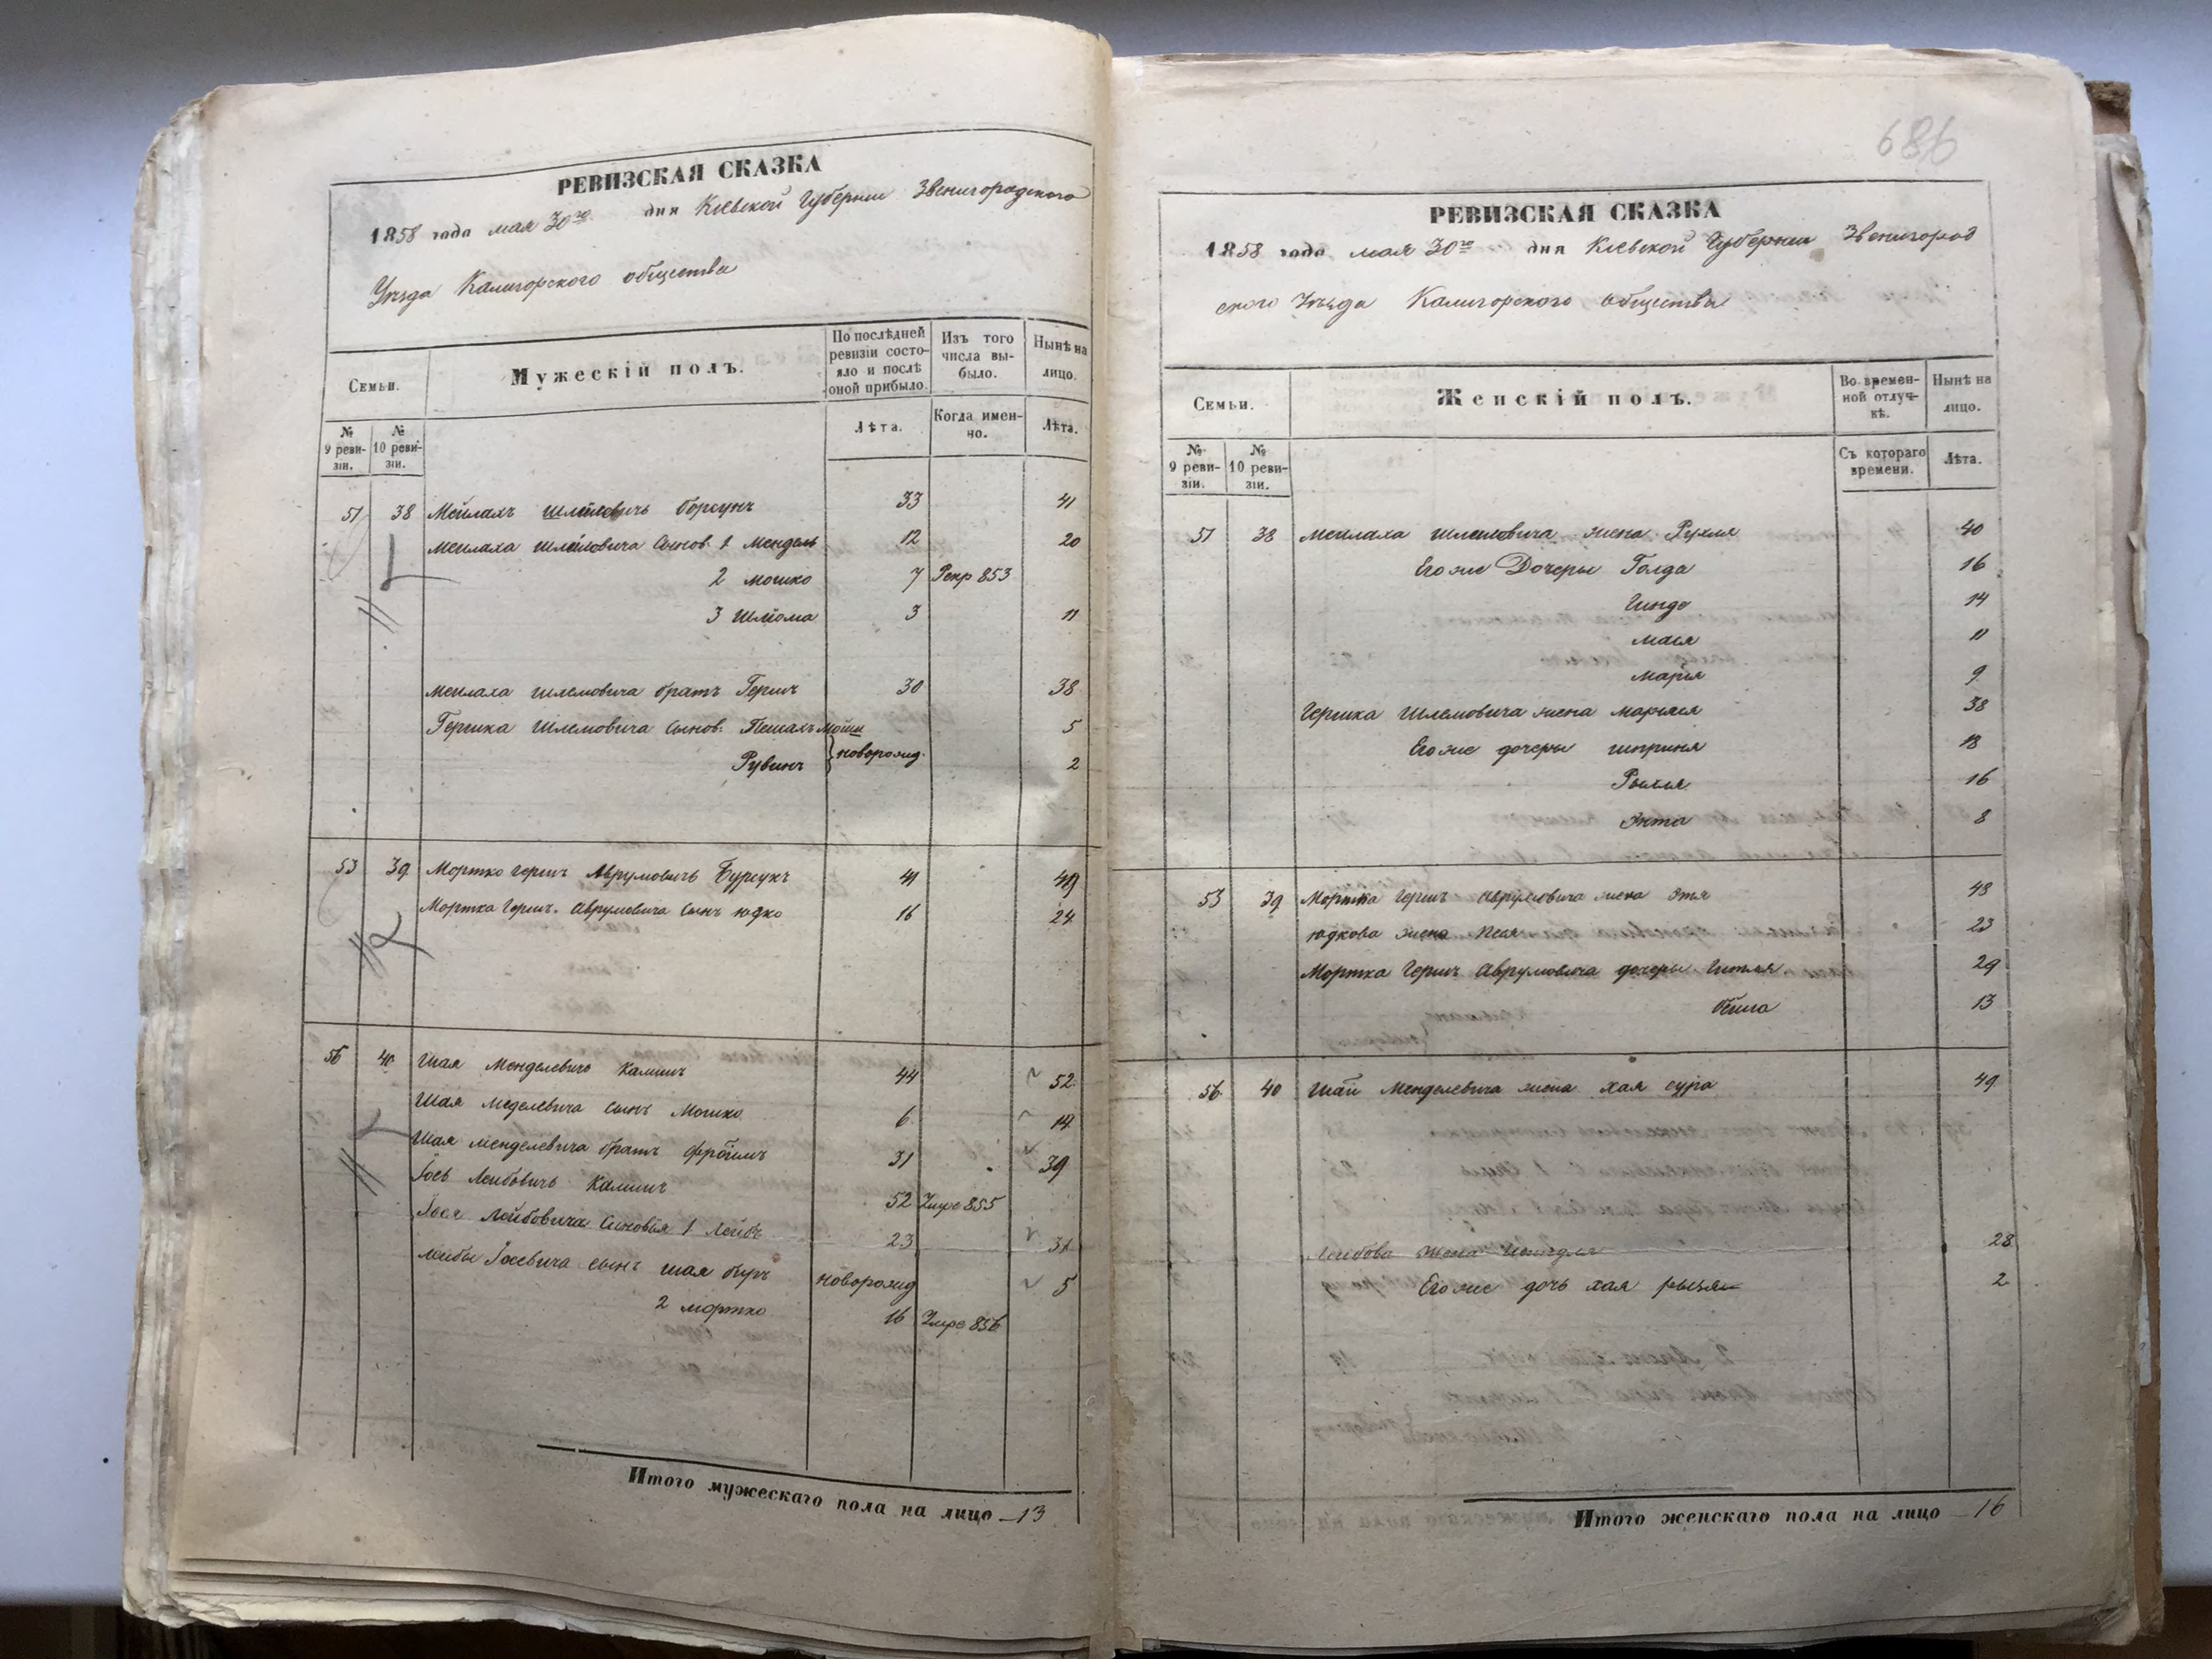 РЕВИЗСКАЯ СКАЗКА
1858 года мая 30го дня Кіевской Губерніи Звенигородского
Уѣзда Калигорского общества
Семьи.
Мужескій полъ.
По послѣдней ревизіи состояло и послѣ оной прибыло.
Изъ того числа выбыло.
Нынѣ на лицо.
№ 9 ревизіи.
№ 10 ревизіи.
Лѣта.
Когда именно.
Лѣта.
51 38 Мейлахъ Шлемовичь Борсукъ 33 41
Мейлаха Шлемовича Сынов. 1 Мендель 12 20
2 Мошко 7 Рекр 853
3 Шлиома 3 11
Мейлаха Шлемовича братъ Гершъ 30 38
Гершка Шлемовича Сынов. Пешахъ Мойши 5
Рувинъ } новорожд. 2
53 39 Мортко Гершъ Аврумовичь Бурсукъ 41 49
Мортка Гершъ. Аврумовича Сынъ Юдко 16 24
56 40 Шая Менделевичь Калишъ 44 52
Шая Меделевича сынъ Мошко 6 14
Шая Менделевича братъ Фройимъ 31 39
Іось Лейбовичь Калишъ 52 Умре 855
Іося Лейбовича Сыновья 1 Лейбъ 23 31
Лейбы Іосевича сынъ Шая Беръ новорожд 5
2 Мортко 16 Умре 856
Итого мужескаго пола на лицо 13
686
РЕВИЗСКАЯ СКАЗКА
1858 года мая 30го дня Кіевской Губерніи Звенигород
ского Уѣзда Калигорского общества
Семьи.
Женскій полъ.
Во временной отлучкѣ.
Нынѣ на лицо.
№ 9 ревизіи.
№ 10 ревизіи.
Съ котораго времени.
Лѣта.
51 38 Мейлаха Шлемовича жена Рухля 40
Его же Дочеры Голда 16
Гинде 14
Мася 11
Марья 9
Гершка Шлемовича жена Марьяся 38
Его же дочеры Шприня 18
16
Энта 8
53 39 Мортка Гершъ Аврумовича жена Этя 48
Юдкова жена Песя 23
Мортка Гершъ Аврумовича дочеры Гитля 29
13
56 40 Шаи Менделевича жена Хая Сура 49
Лейбова жена 28
Его же дочь Хая Рыся 2
Итого женскаго пола на лицо 16